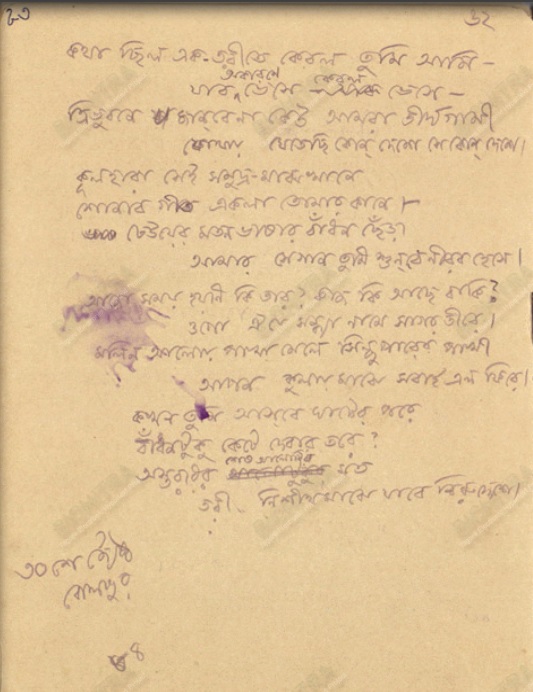 ৬২
কথা ছিল এক-তরীতে কেবল তুমি আমি –
যাব অকারণে ভেসে কেবল ভেসে –
ত্রিভুবনে জানবেনা কেউ আমরা তীর্থগামী
কোথায় যেতেছি কোন্ দেশে সে কোন্ দেশে।
কূলহারা সেই সমুদ্র-মাঝখানে
শোনাব গান একলা তোমার কানে।
ঢেউয়ের মতন ভাষার বাঁধন হারা
আমার সেগান তুমি শুন্‌বে নীরব হেসে।
আজো সময় হয়নি কি তার? কাজ কি আছে বাকি?
ওগো ঐযে সন্ধ্যা নামে সাগর তীরে।
মলিন আলোয় পাখা মেলে সিন্ধুপারের পাখী
আপন কুলায় মাঝে সবাই এল ফিরে।
কখন তুমি আসবে ঘাটের পরে
বাঁধনটুকু কেটে দেবার তরে?
অস্তরবির শেষ আলোটির মত
তরী নিশীথমাঝে যাবে নিরুদ্দেশে।
৩০শে জ্যৈষ্ঠ
বোলপুর